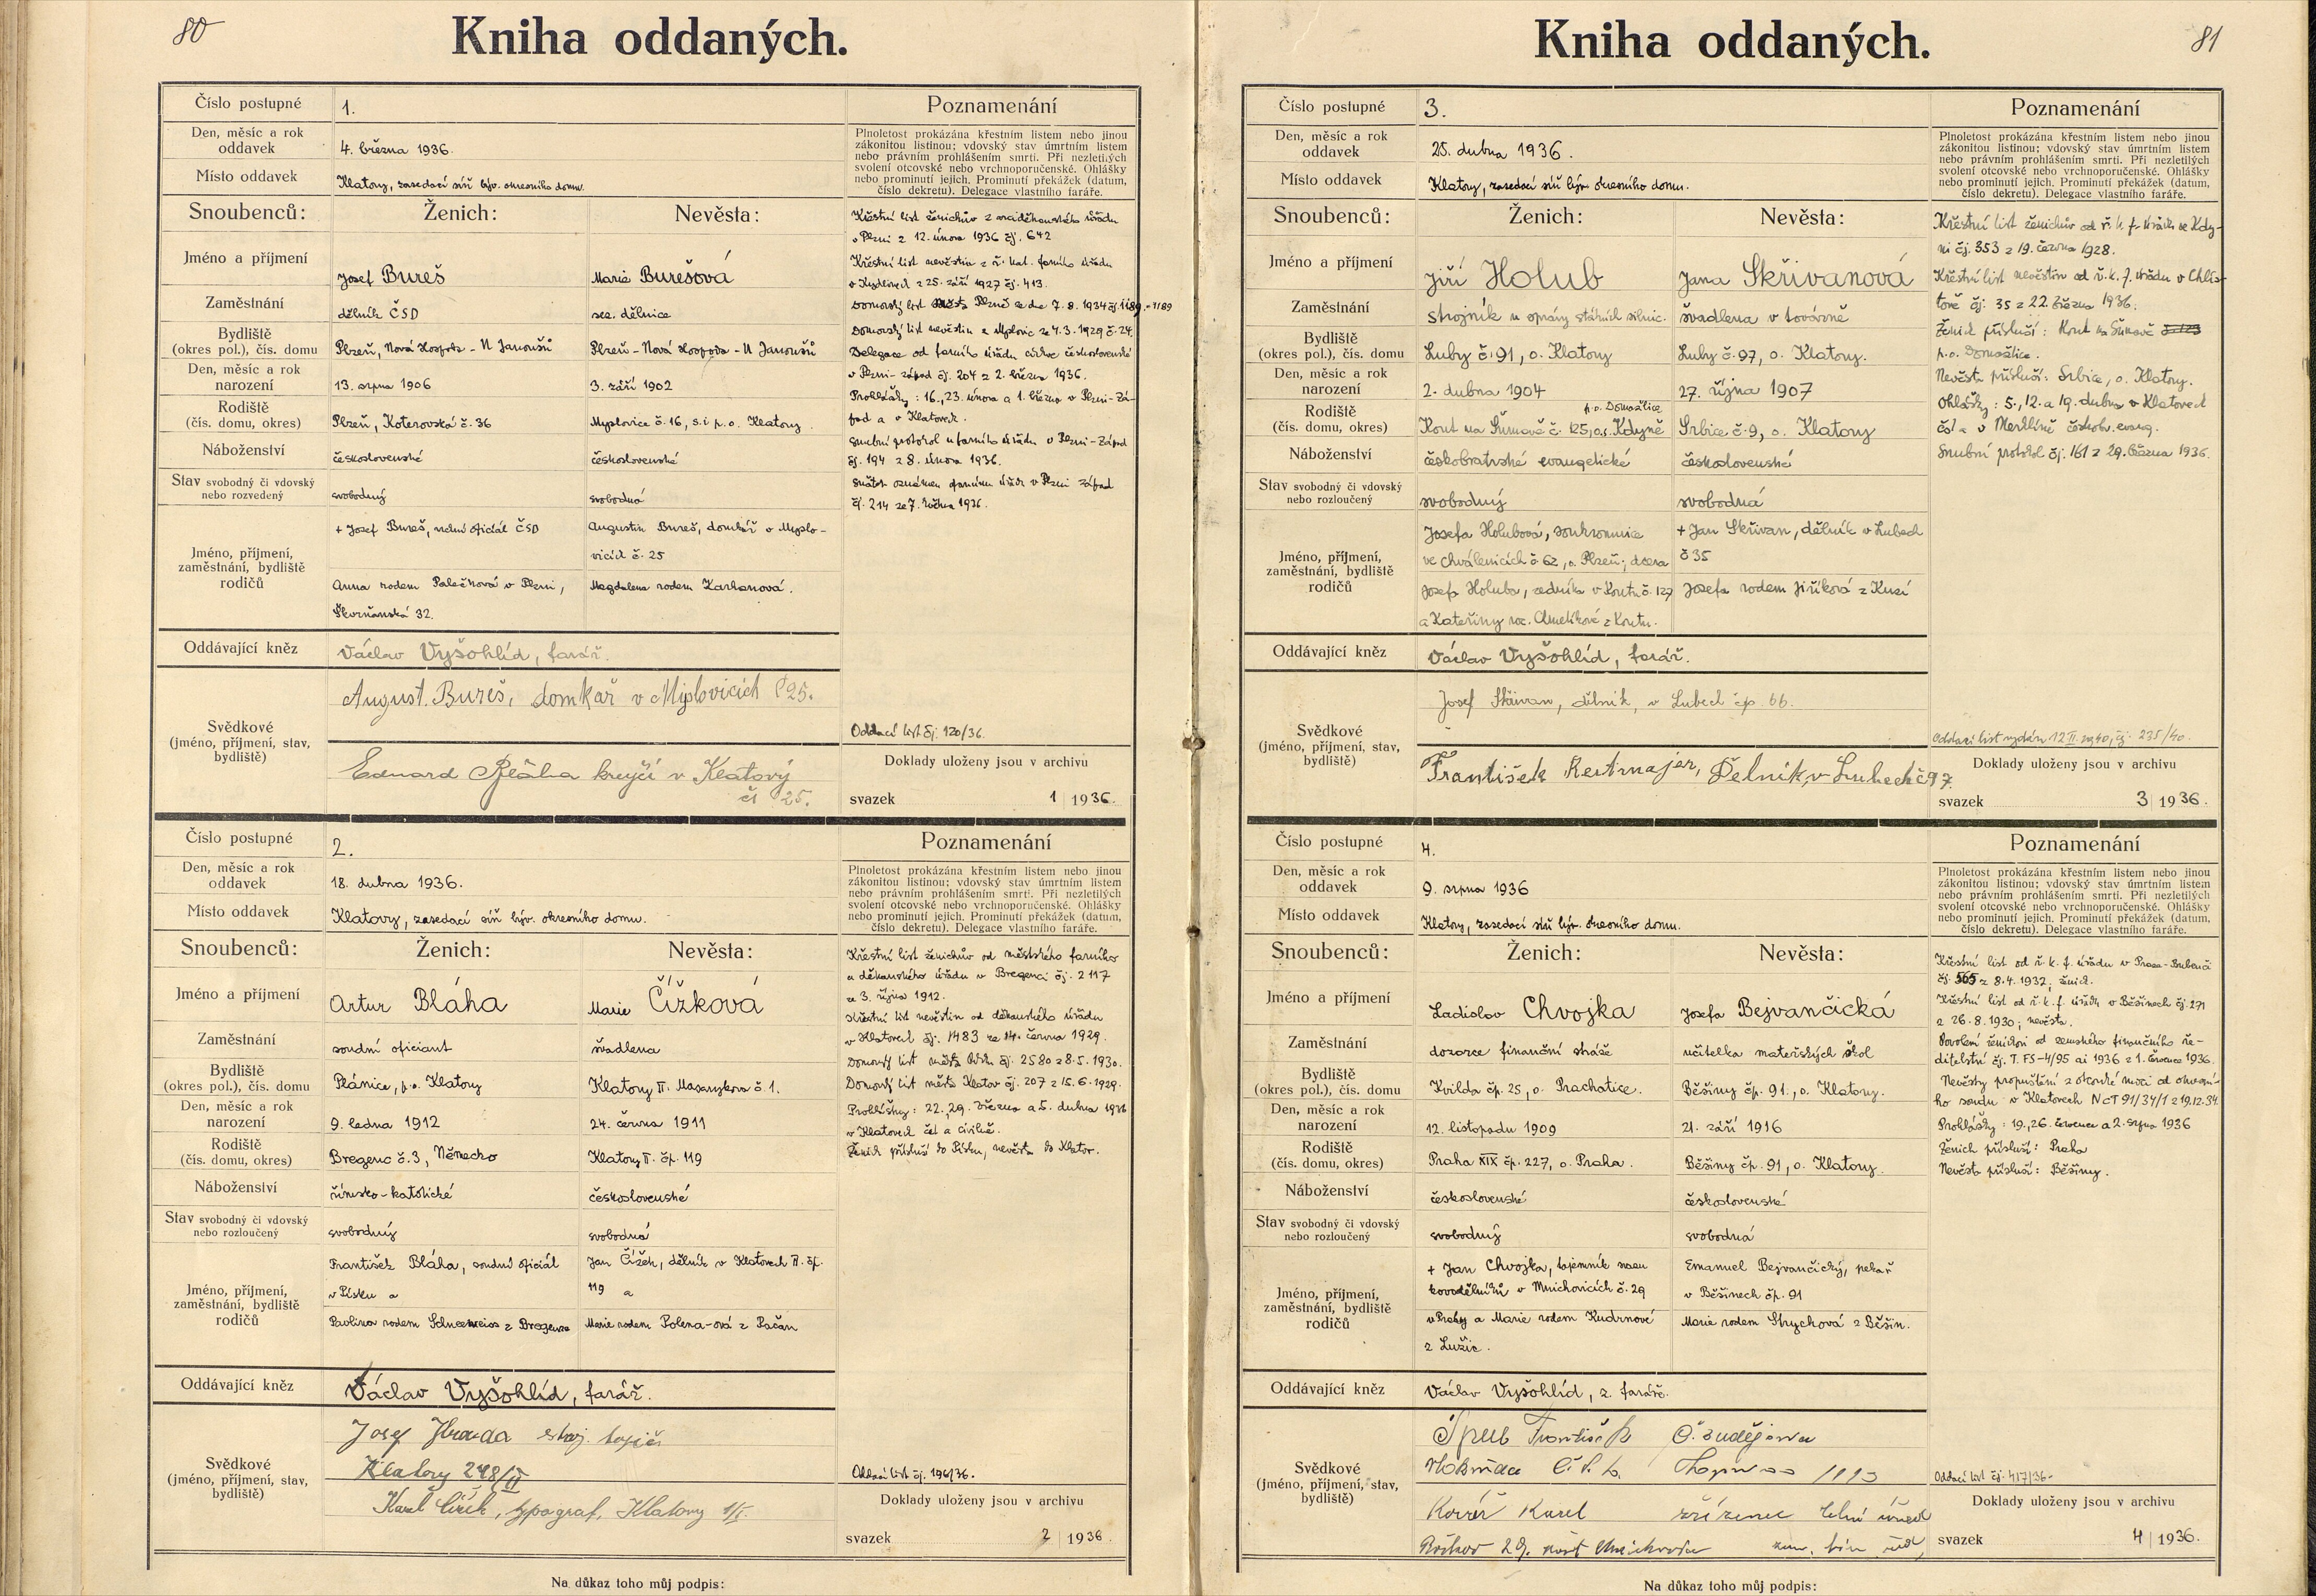 80
Kniha oddaných.
Číslo postupné 1.
Den, měsíc a rok oddavek 4. března 1936.
Místo oddavek Klatovy, zasedací síň býv. okresního domu.
Snoubenců: Ženich: Nevěsta:
Jméno a příjmení Josef Bureš Marie Burešová
Zaměstnání dělník ČSD sez. dělnice
Bydliště (okres pol.), čís. domu Plzeň, Nová Hospoda - U Janoušů Plzeň - Nová Hospoda - U Janoušů
Den, měsíc a rok narození 13. srpna 1906 3. září 1902
Rodiště (čís. domu, okres) Plzeň, Koterovská č. 36 Myslovice č. 16, s. i p. o. Klatovy.
Náboženství československé československé
Stav svobodný či vdovský nebo rozvedený svobodný svobodná
Jméno, příjmení, zaměstnání, bydliště rodičů
+ Josef Bureš, oficiál ČSD
Anna rodem Palečková v Plzni,
Škvrňanská 32.
Augustin Bureš, domkář v Myslo-
vicích č. 25
Magdalena rodem Karbanová.
Oddávající kněz Václav Vyšohlíd, farář.
Svědkové (jméno, příjmení, stav, bydliště)
August. Bureš, domkář v Myslovicích č 25.
Eduard Bláha krejčí v Klatovy
čí 25.
Poznamenání
Plnoletost prokázána křestním listem nebo jinou
zákonitou listinou; vdovský stav úmrtním listem
nebo právním prohlášením smrti. Při nezletilých
svolení otcovské nebo vrchnoporučenské. Ohlášky
nebo prominutí jejich. Prominutí překážek (datum,
číslo dekretu). Delegace vlastního faráře.
Křestní list ženichův z arciděkanského úřadu
v Plzni z 12. února 1936 čj. 642
Křestní list nevěstin z ř. kat. farního úřadu
z 25. září 1927 čj. 413.
Domovský list města Plzně ze dne 7. 8. 1934 čj. 1189
Domovský list nevěstin z Myslovic ze 4. 3. 1929 č. 24.
Delegace od farního úřadu církve československé
v Plzni-západ čj. 204 z 2. března 1936.
Prohlášky: 16., 23. února a 1. března v Plzni-Zá-
pad a v Klatovech.
Snubní protokol u farního úřadu v Plzni-Západ
čj. 194 z 8. února 1936.
Sňatek oznámen farnímu úřadu v Plzni západ
čj. 214 ze 7. března 1936.
Oddací list čj. 120/36.
Doklady uloženy jsou v archivu
svazek 1 | 1936.
Číslo postupné 2.
Den, měsíc a rok oddavek 18. dubna 1936.
Místo oddavek Klatovy, zasedací síň býv. okresního domu.
Snoubenců: Ženich: Nevěsta:
Jméno a příjmení Artur Bláha Marie Čížková
Zaměstnání soudní oficiant švadlena
Bydliště (okres pol.), čís. domu Plánice, p. o. Klatovy Klatovy II. Masarykova č. 1.
Den, měsíc a rok narození 9. ledna 1912 24. června 1911
Rodiště (čís. domu, okres) Bregenc č. 3, Německo Klatovy II. čp. 119
Náboženství římsko-katolické československé
Stav svobodný či vdovský nebo rozloučený svobodný svobodná
Jméno, příjmení, zaměstnání, bydliště rodičů
František Bláha, soudní oficiál
v Písku a
Pavlina rodem z Bregenze
Jan Čížek, dělník v Klatovech II. čp.
119 a
Marie rodem Polena-ová z Pačan
Oddávající kněz Václav Vyšohlíd, farář.
Svědkové (jméno, příjmení, stav, bydliště)
Josef stroj. topič
Klatovy 248/II
Karel Čížek, typograf, Klatovy 1/I.
Poznamenání
Plnoletost prokázána křestním listem nebo jinou
zákonitou listinou; vdovský stav úmrtním listem
nebo právním prohlášením smrti. Při nezletilých
svolení otcovské nebo vrchnoporučenské. Ohlášky
nebo prominutí jejich. Prominutí překážek (datum,
číslo dekretu). Delegace vlastního faráře.
Křestní list ženichův od městského farního
a děkanského úřadu v Bregenci čj. 2117
ze 3. října 1912.
Křestní list nevěstin od děkanského úřadu
v Klatovech čj. 1483 ze 14. června 1929.
Domovský list města Písku čj. 2580 z 8. 5. 1930.
Domovský list města Klatov čj. 207 z 15. 6. 1929.
Prohlášky: 22., 29. března a 5. dubna 1936
v Klatovech čsl a civilně.
Ženich přísluší do Písku, nevěsta do Klatov.
Oddací list čj. 196/36.
Doklady uloženy jsou v archivu
svazek 2 | 1936
Na důkaz toho můj podpis:
81
Kniha oddaných.
Číslo postupné 3.
Den, měsíc a rok oddavek 25. dubna 1936.
Místo oddavek Klatovy, zasedací síň býv. okresního domu.
Snoubenců: Ženich: Nevěsta:
Jméno a příjmení Jiří Holub Jana Skřivanová
Zaměstnání strojník u správy státních silnic. švadlena v továrně
Bydliště (okres pol.), čís. domu Luby č. 91, o. Klatovy Luby č. 97, o. Klatovy.
Den, měsíc a rok narození 2. dubna 1904 27. října 1907
Rodiště (čís. domu, okres) Kout na Šumavě č. 125, o.s. Kdyně p. o. Domažlice Srbice č. 9, o. Klatovy
Náboženství českobratrské evangelické československé
Stav svobodný či vdovský nebo rozloučený svobodný svobodná
Jméno, příjmení, zaměstnání, bydliště rodičů
Josefa Holubová, soukromnice
ve Chválenicích č. 62, o. Plzeň; dcera
Josefa Holuba, zedníka v Koutu č. 127
a Kateřiny roz. Chmelíkové z Koutu.
+ Jan Skřivan, dělník v Lubech
č 35
Josefa rodem Jiříková z Kusí
Oddávající kněz Václav Vyšohlíd, farář.
Svědkové (jméno, příjmení, stav, bydliště)
Josef Skřivan, dělník, v Lubech čp. 66.
František Restmajer, Dělník, v Lubech č 97.
Poznamenání
Plnoletost prokázána křestním listem nebo jinou
zákonitou listinou; vdovský stav úmrtním listem
nebo právním prohlášením smrti. Při nezletilých
svolení otcovské nebo vrchnoporučenské. Ohlášky
nebo prominutí jejich. Prominutí překážek (datum,
číslo dekretu). Delegace vlastního faráře.
Křestní list ženichův od ř. k. f. úřadu ve Kdy-
ni čj. 353 z 19. června 1928.
Křestní list nevěstin od ř. k. f. úřadu v Chlis-
tově čj. 35 z 22. března 1936.
Ženich přísluší: Kout na Šumavě
p. o. Domažlice.
Nevěsta přísluší: Srbice, o. Klatovy.
Ohlášky: 5., 12. a 19. dubna v Klatovech
čsl a v Merklíně českobr. evang.
Snubní protokol čj. 161 z 29. března 1936.
Oddací list vydán 12. II. 1940, čj. 235/40.
Doklady uloženy jsou v archivu
svazek 3 | 1936.
Číslo postupné 4.
Den, měsíc a rok oddavek 9. srpna 1936
Místo oddavek Klatovy, zasedací síň býv. okresního domu.
Snoubenců: Ženich: Nevěsta:
Jméno a příjmení Ladislav Chvojka Josefa Bejvančická
Zaměstnání dozorce finanční stráže učitelka mateřských škol
Bydliště (okres pol.), čís. domu Kvilda čp. 25, o. Prachatice. Běšiny čp. 91., o. Klatovy.
Den, měsíc a rok narození 12. listopadu 1909 21. září 1916
Rodiště (čís. domu, okres) Praha XIX čp. 227, o. Praha. Běšiny čp. 91, o. Klatovy.
Náboženství československé československé
Stav svobodný či vdovský nebo rozloučený svobodný svobodná
Jméno, příjmení, zaměstnání, bydliště rodičů
+ Jan Chvojka, tajemník svazu
kovodělníků v Mnichovicích č. 29
u Prahy a Marie rodem Kudrnové
z Lužic.
Emanuel Bejvančický, pekař
v Běšinech čp. 91
Marie rodem Strychová z Běšin.
Oddávající kněz Václav Vyšohlíd, z. faráře.
Svědkové (jméno, příjmení, stav, bydliště)
František Č. Budějovice
Kovář Karel zřízenec
Poznamenání
Plnoletost prokázána křestním listem nebo jinou
zákonitou listinou; vdovský stav úmrtním listem
nebo právním prohlášením smrti. Při nezletilých
svolení otcovské nebo vrchnoporučenské. Ohlášky
nebo prominutí jejich. Prominutí překážek (datum,
číslo dekretu). Delegace vlastního faráře.
Křestní list od ř. k. f. úřadu v Praze-Bubenči
čj. 565 z 8. 4. 1932; ženich.
Křestní list od ř. k. f. úřadu v Běšinech čj. 271
z 26. 8. 1930; nevěsta.
Povolení ženichovi od zemského finančního ře-
ditelství čj. T. FS-4/95 ai 1936 z 1. července 1936.
Nevěsty propuštění z otcovské moci od okresní-
ho soudu v Klatovech Nc T 91/34/1 z 19. 12. 34.
Prohlášky: 19., 26. července a 2. srpna 1936
Ženich přísluší: Praha
Nevěsta přísluší: Běšiny.
Oddací list čj. 417/36-
Doklady uloženy jsou v archivu
svazek 4 | 1936.
Na důkaz toho můj podpis: